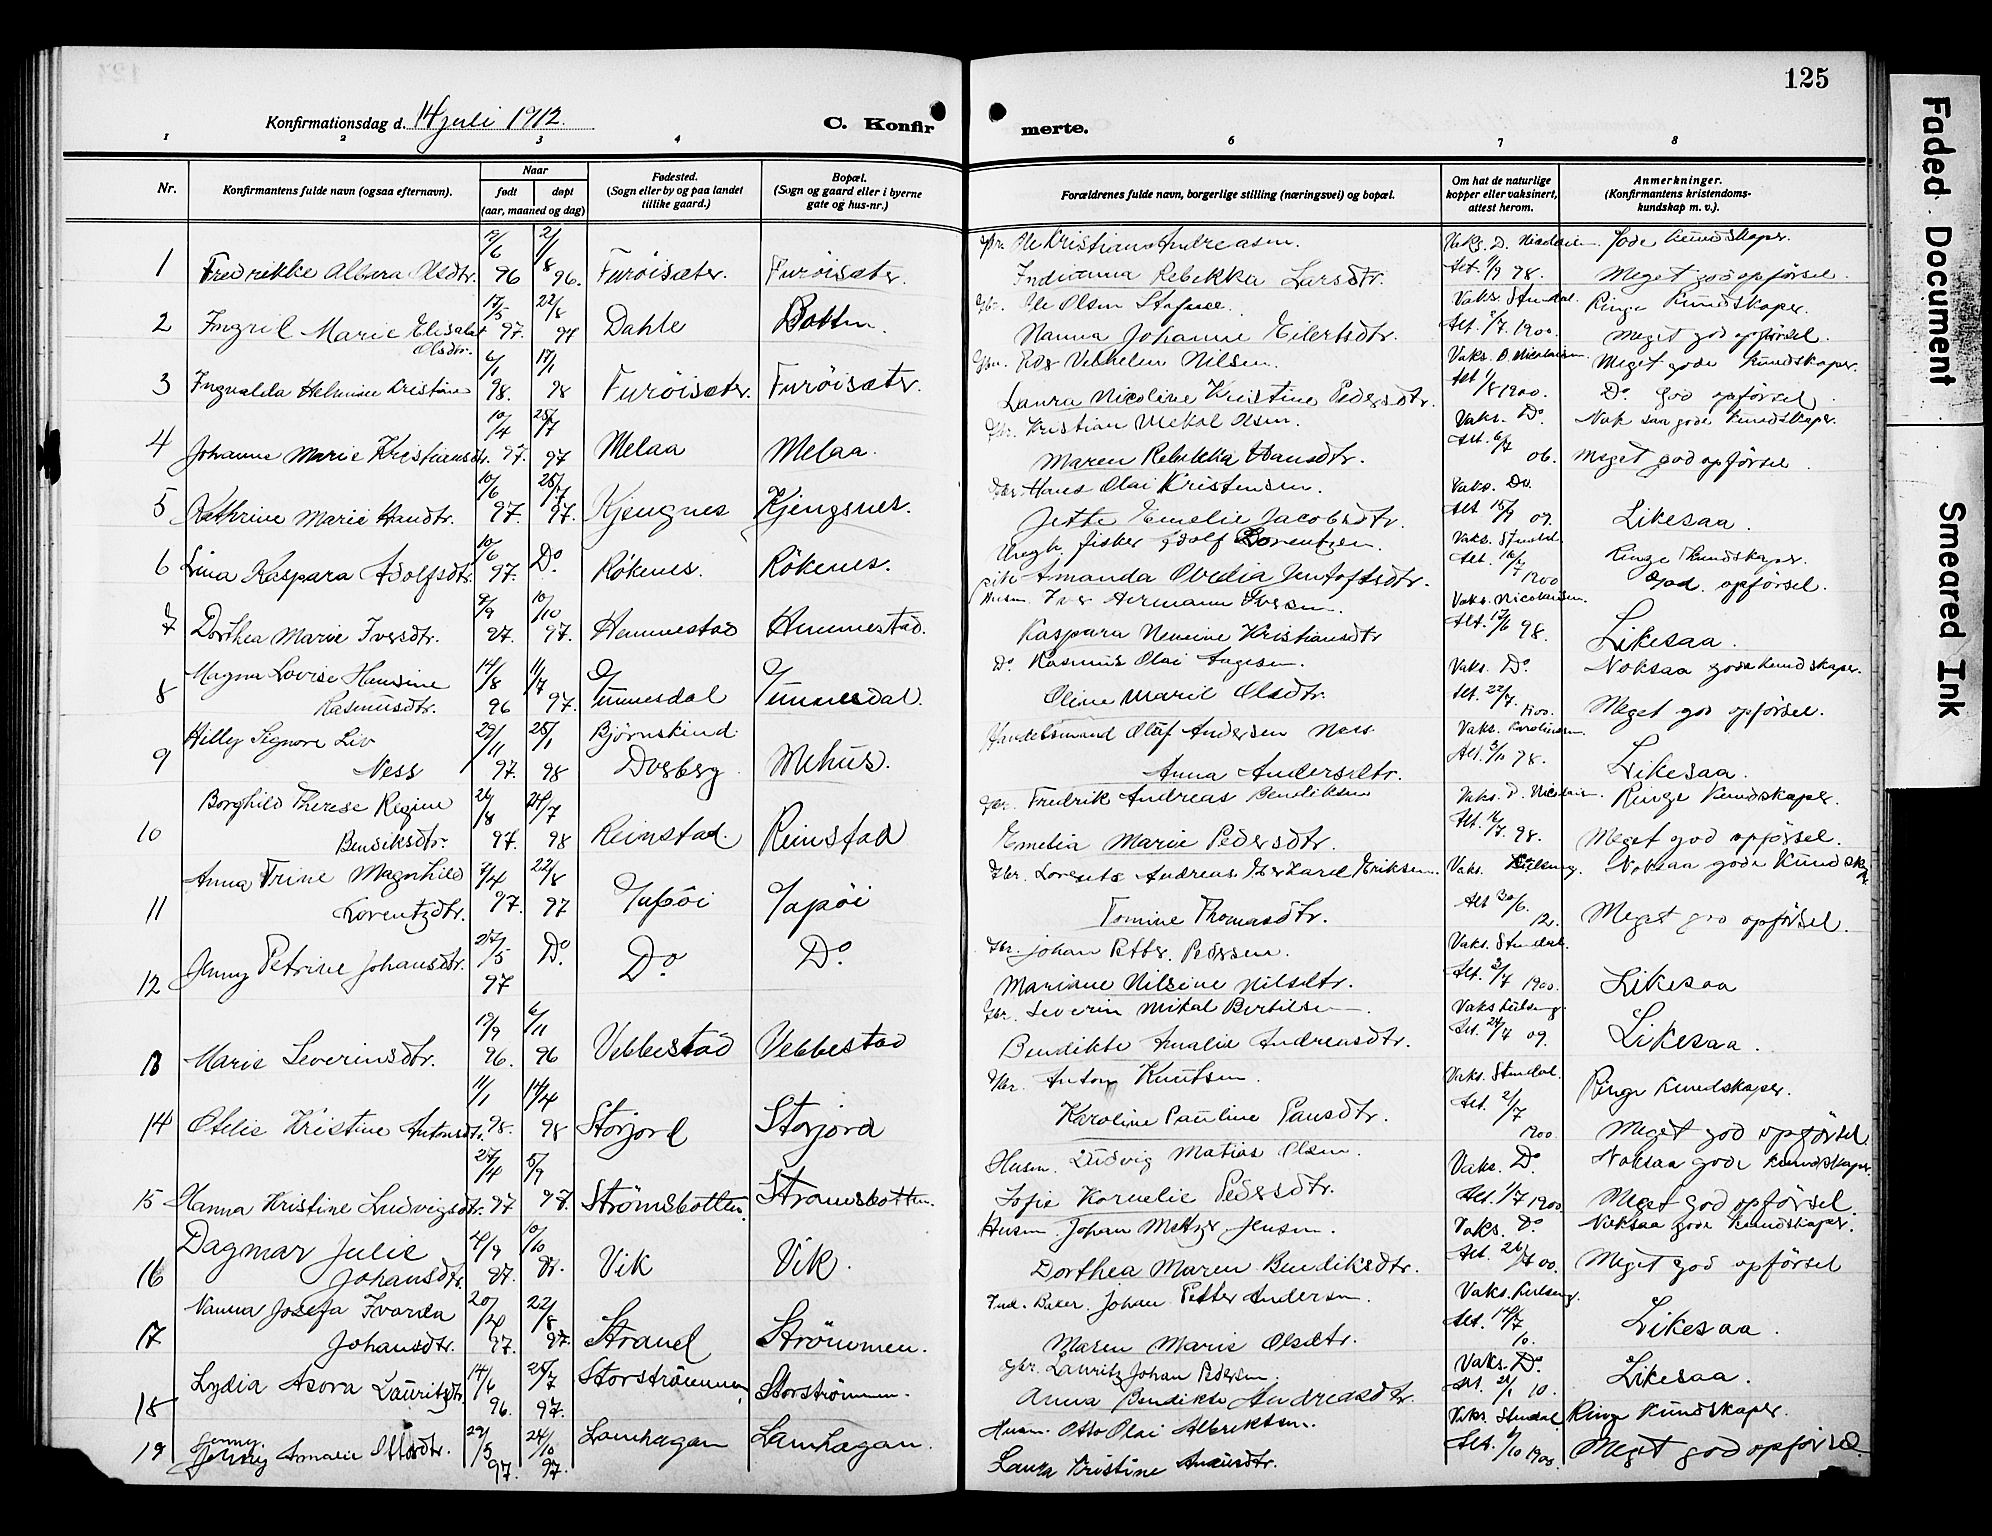 125
Konfirmationsdag d. 14 juli 1912.
C. Konfirmerte.
1 2 3 4 6 7 8
Nr.
Konfirmantens fulde navn (ogsaa efternavn).
Naar
født
døpt
(aar, maaned og dag)
Fødested.
(Sogn eller by og paa landet
tillike gaard.)
Bopæl.
(Sogn og gaard eller i byerne
gate og hus-nr.)
Forældrenes fulde navn, borgerlige stilling (næringsvei) og bopæl.
Om hat de naturlige
kopper eller vaksinert,
attest herom.
Anmerkninger.
(Konfirmantens kristendoms-
kundskap m. v.).
1 Fredrikke Albera Olsdtr. 96 96. Furöisæter. Furöisæter.
Ole Kristian Andreasen.
Indianna Rebekka Larsdtr.
Vaks. D. Nicolaisen. Gode kundskaper.
Att. 1/9 98. Meget god opförsel.
2 Ingril Marie Elisabet Olsdtr. 17/5 97. 22/8 97 Dahle Botten.
Gbr. Ole Olsen
Nanna Johanne Eilertsdtr.
Vaks. Stendal. Ringe Kundskaper.
Att. 2/7 1900. Meget god opförsel.
3 Ingvalda Helmine Kristine 6/1 98. 17/1 98 Furöisæter. Furöisæter.
Peder Vilhelm Nilsen.
Laura Nicoline Kristine Pedersdtr.
Vaks. D. Nicolaisen Meget gode kundskaper.
Att. 1/8 1900. Do. God opförsel.
4 Johanne Marie Kristiansdtr. 10/4 97. 25/7 97 Melaa Melaa.
Gbr. Kristian Mekal Olsen.
Maren Rebekka Hansdtr.
Vaks. Do Nok saa gode kundskaper.
Att. 6/7 06. Meget god opförsel.
5 Kathrine Marie Handtr. 10/6 97. 25/7 97. Kjengnes Kjengsnes.
Gbr. Hans Olai Kristensen.
Jette Emelie Jacobsdtr.
Vaks. Do.
Att. 15/7 09. Likesaa.
6 Lina Kaspara Adolfsdtr. 10/6 97. Do. Rökenes. Rökenes.
Ungk. fisker Adolf Lorentzen.
Pike Amanda Ovedia Jentoftsdtr.
Vaks. Stendal. Ringe Kundskaper.
Att. 16/7 1900 God opförsel.
7 Dorthea Marie Iversdtr. 9/9 97. 10/10 97. Hemmestad Hemmestad.
Husm. Iver Hermann Iversen.
Kaspara Nemine Kristiansdtr
Vaks. Nicolaisen.
Att. 17/6 98. Likesaa.
8 Magna Lovise Hansine Rasmusdtr. 14/8 96 11/7 97. Gummesdal Gummesdal.
Do Rasmus Olai Aagesen.
Oline Marie Olsdtr.
Vaks. Do. Noksaa gode kundskaper.
Att. 22/7 1900. Meget god opförsel.
9 Hilly Signore Liv Ness 29/11 97. 25/1 98 Björnskind Dverberg Mehus.
Handelsmand Olaf Andersen Ness.
Anna Andersdtr.
Vaks.
Att. 3/11 98. Likesaa.
10 Borghild Therese Regine Bendiksdtr. 26/8 97. 24/7 98 Reinstad. Reinstad
Gbr. Fredrik Andreas Bendiksen
Emelia Marie Pedersdtr.
Vaks. D. Nicolaisen. Ringe kundskaper.
Att. 16/7. 98. Meget god opförsel.
11 Anna Trine Magnhild Lorentzdtr. 7/4 97. 22/8 97 Gapöi Gapöi
Gbr. Lorents Andreas Eriksen.
Tomine Thomasdtr.
Vaks. Noksaa gode kundsk
Att 30/6. 12. Meget god opförsel.
12 Jenny Petrine Johansdtr. 27/5 97 Do. Do Do
Gbr. Johan Petter Pedersen.
Mariane Nilsine Nilsdtr.
Vaks. Stendal.
Att. 3/7 1900. Likesaa
13 Marie Severinsdtr. 19/9 96. 6/11 96 Vebbestad Vebbestad
Gbr. Severin Mikal Bertilsen.
Bendikte Amalie Andreasdtr.
Vaks
Att. 24/7 09. Likesaa.
14 Otelie Kristine Antonsdtr. 11/1 98. 14/4 98 Storjord Storjord
Gbr. Anton Knutsen.
Karoline Pauline Paulsdtr.
Vaks. Stendal. Ringe kundskaper.
Att. 21/7 1900. Meget god opförsel
15 Hanna Kristine Ludvigsdtr. 27/4 97 5/9 97. Strömsbotten. Strömsbotten.
Husm. Ludvig Matias Olsen.
Sofie Kornelie Pedersdtr.
Vaks. Do Noksaa gode kundskaper.
Att. 1/7 1900 Meget god opförsel.
16 Dagmar Julie Johansdtr. 4/9 97. 10/10 Vik Vik.
Husm. Johan Metzer Jensen.
Dorthea Maren Bendiksdtr.
Vaks. Do Noksaa gode kundskaper.
Att. 26/7 00. Meget god opförsel
17 Nanna Josefa Ivarda Johansdtr. 97. 22/8 97. Strand Strömmen.
Johan Petter Andersen.
Maren Marie Olsdtr.
Vaks.
Att. 14/7 10. Likesaa.
18 Lydia Asora Lauritzdtr. 14/6 96. 25/7 97. Storströmmen, Storströmmen.
Gbr. Lauritz Johan Pedersen.
Anna Bendikte Andreasdtr.
Vaks. Do
Att. 10. Likesaa.
19 Jenny Amalie Ottosdtr. 29/5 97. 24/10 97. Lamhagan Lamhagan.
Husm. Otto Olai Albriktsen.
Laura Kristine
Vaks. Stendal Ringe kundskaper.
Att. 1900. Meget god opförsel
Faded Document
Smeared Ink